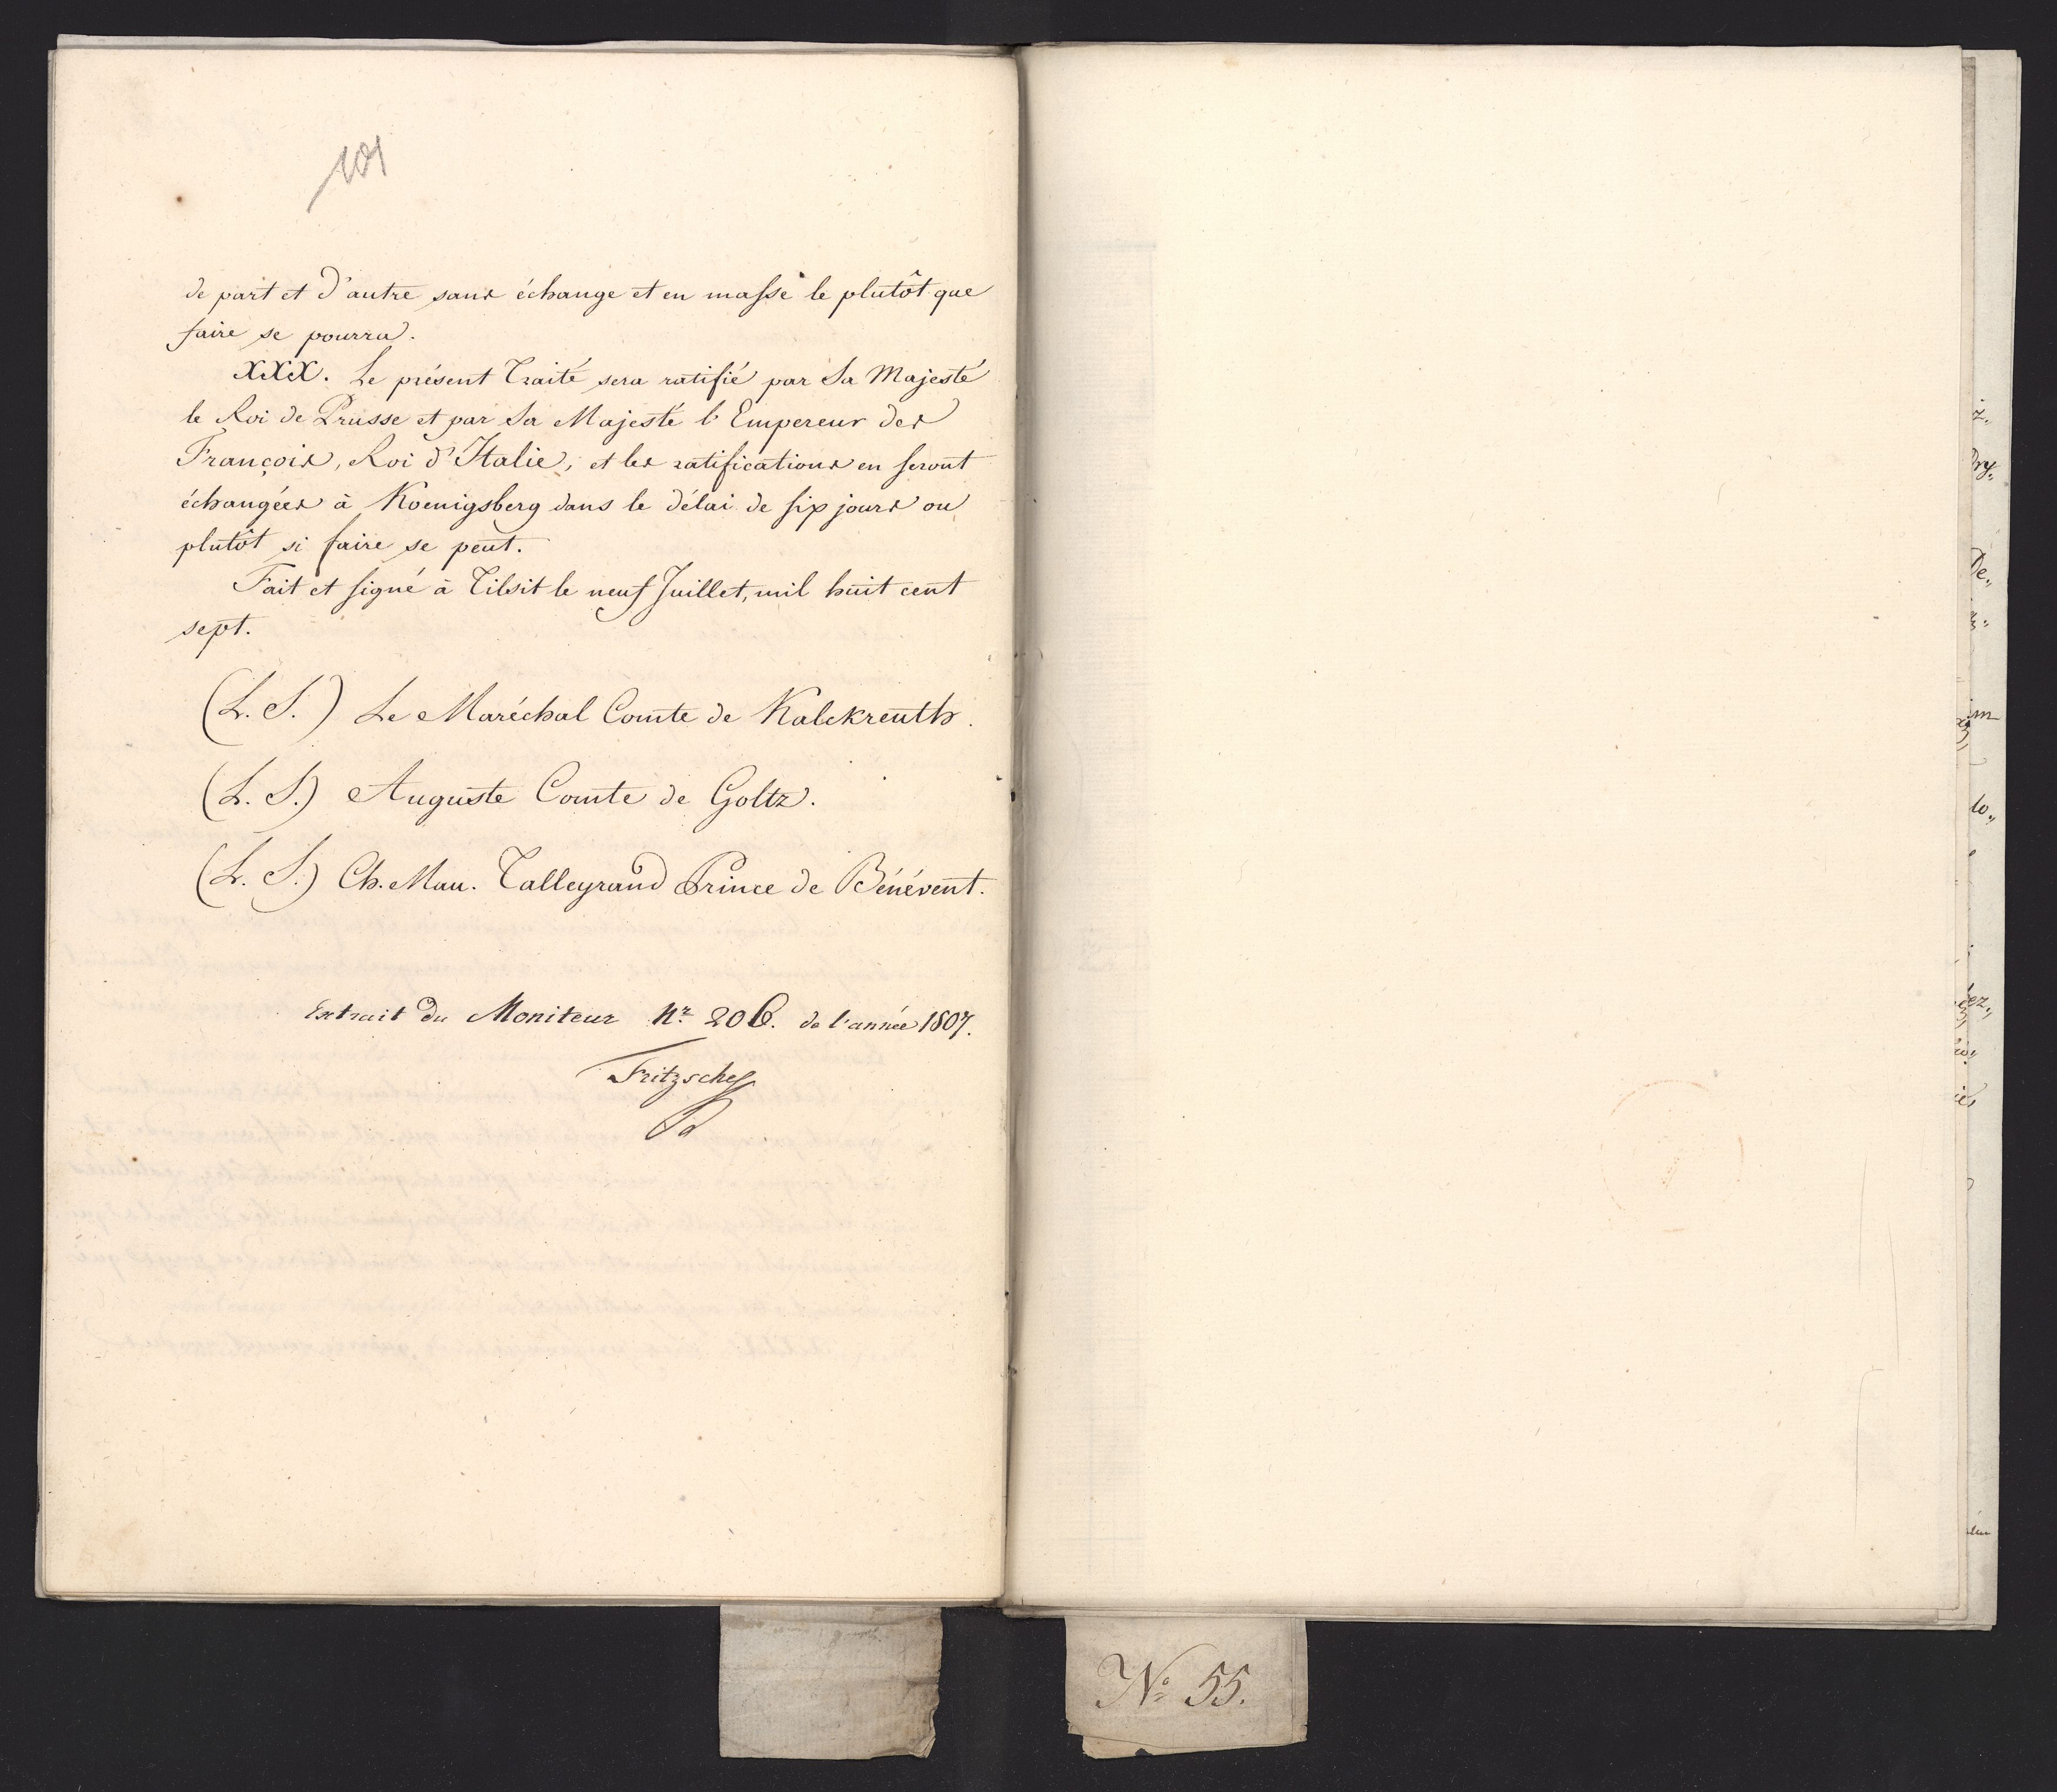 101
de part et d'autre sans échange et en masse le plutôt que
faire se pourra.
XXX. Le présent Traité sera ratifié par Sa Majesté
le Roi de Prusse et par Sa Majesté l'Empereur des
François, Roi d'Italie, et les ratifications en seront
échangées à Koenigsberg dans le délai de six jours ou
plutôt si faire se peut.
Fait et signé à Tilsit le neuf Juillet, mil huit cent
sept.
(L. S.) Le Maréchal Comte de Kalckreuth.
(L. S.) Auguste Comte de Goltz.
(L. S.) Ch. Mau. Talleyrand Prince de Bénévent.
Extrait du Moniteur Nr. 206. de l'année 1807.
Fritzsche
No 55.